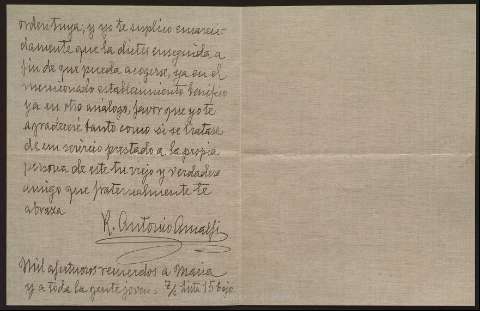 orden tuya, y yo te suplico encareci-
damente que la dictes enseguida a
fin de que pueda acogerse, ya en el
mencionado establecimiento benéfico
ya en otro análogo, favor que yo te
agradeceré tanto como si se tratase
de un servicio prestado a la propia
persona de este tu viejo y verdadero
amigo que fraternalmente te
abraza
R. Antonio Amalfi
Mil afectuosos recuerdos a Maria
y a toda la gente joven. 15 bajo